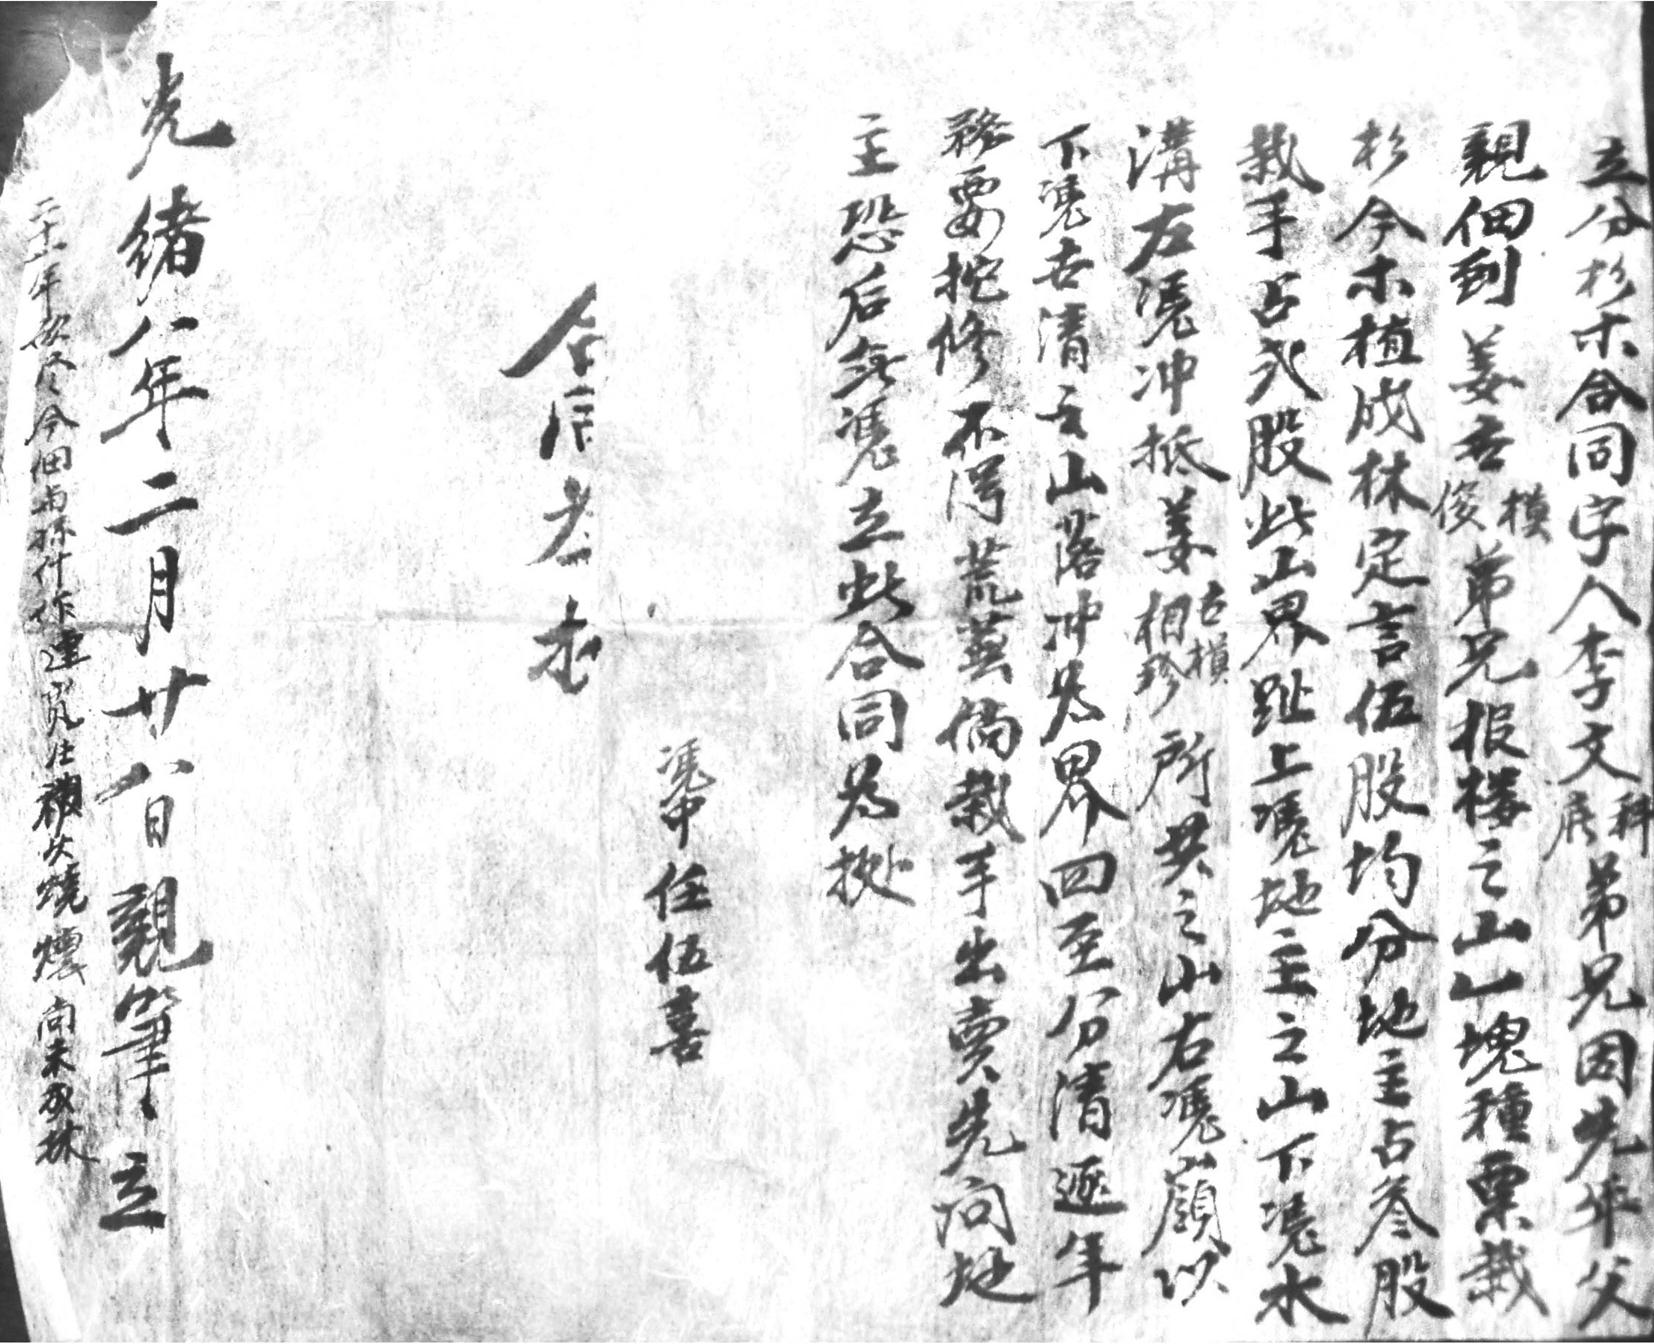 立分杉木合同字人李文科展弟兄因先年父
親佃到姜吉模俊弟兄报楼之山一塊種粟栽
杉今木植成林定言伍股均分地主占叁股
栽手占弍股此山界趾上憑地主之山下憑水
溝左憑冲抵姜相珍古模所共之山右憑嶺以
下憑古清之山落冲為界四至分清遞年
務要挖修不得荒蕪倘栽手出賣先问地
主恐后無憑立此合同為據
憑中任伍喜
光緒八年二月廿八日親筆立
年砍尽今佃与孫什作連 被火燒壞尚未成林